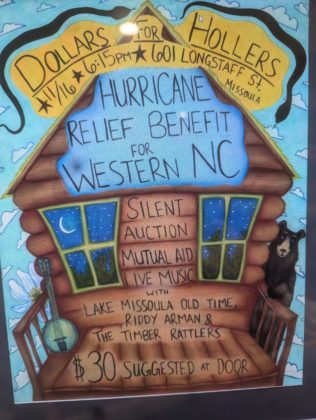 DOLLARS FOR HOLLERS
★11/16★6:15PM★ 601 LONGSTAFF ST.
MISSOULA
HURRICANE
RELIEF BENEFIT
FOR
WESTERN NC
SILENT
AUCTION
MUTUAL AID
LIVE MUSIC
WITH
LAKE MISSOULA OLD TIME,
RIDDY ARMAN &
THE TIMBER RATTLERS
$30 SUGGESTED AT DOOR